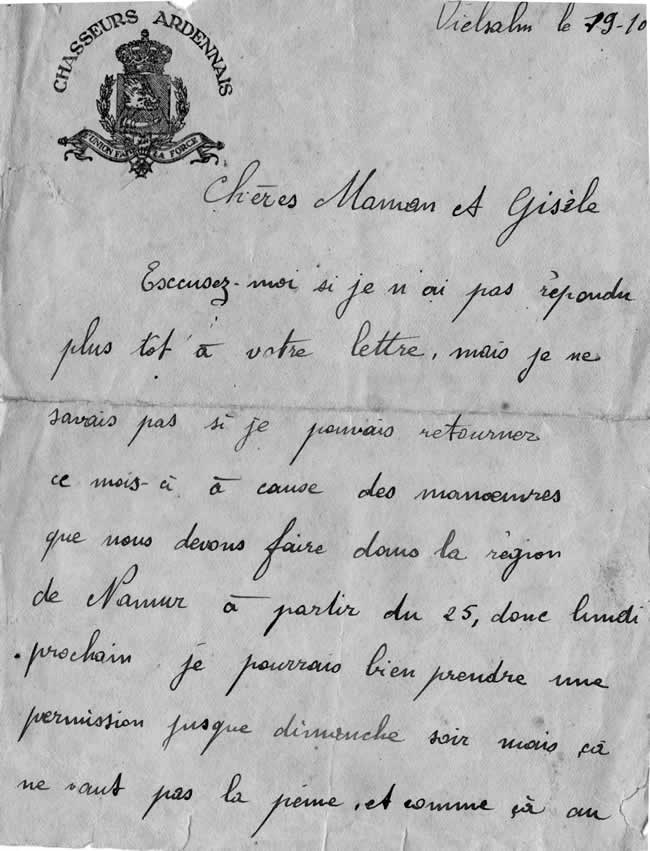 CHASSEURS ARDENNAIS
L'UNION FAIT LA FORCE
Vielsalm le 19-10
Chères Maman et Gisèle
Exccusez-moi si je n'ai pas répondu
plus tôt à votre lettre, mais je ne
savais pas si je pouvais retourner
ce mois-ci à cause des manœuvres
que nous devons faire dans la région
de Namur à partir du 25, donc lundi
prochain je pourrais bien prendre une
permission jusque dimanche soir mais çà
ne vaut pas la peine, et comme çà au